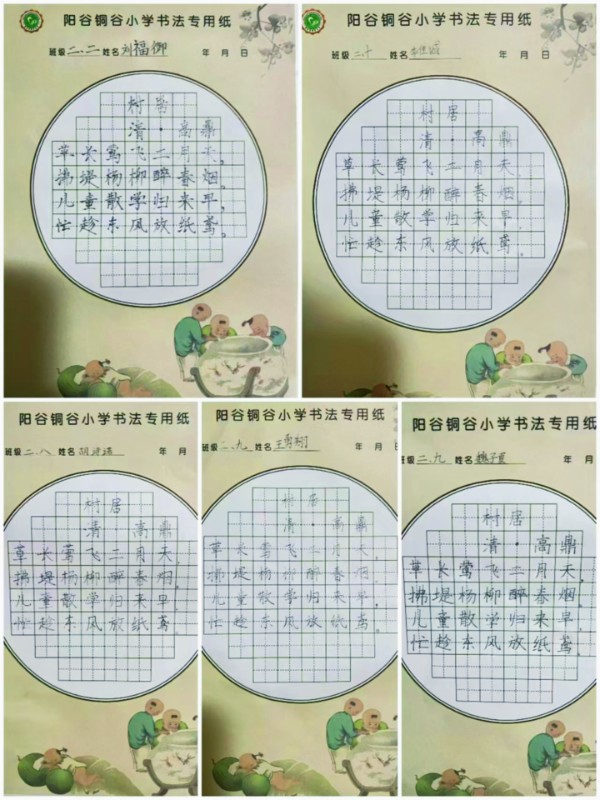 阳谷铜谷小学书法专用纸
班级 二.二 姓名 刘福御 年 月 日
村居
清·高鼎
草长莺飞二月天,
拂堤杨柳醉春烟。
儿童散学归来早,
忙趁东风放纸鸢。
阳谷铜谷小学书法专用纸
班级 二.十 姓名 年 月 日
村居
清·高鼎
草长莺飞二月天,
拂堤杨柳醉春烟。
儿童散学归来早,
忙趁东风放纸鸢。
阳谷铜谷小学书法专用纸
班级 二.八 姓名 年 月 日
村居
清 高鼎
草长莺飞二月天,
拂堤杨柳醉春烟。
儿童散学归来早,
忙趁东风放纸鸢。
阳谷铜谷小学书法专用纸
班级 二.九 姓名 年 月
村居
清·高鼎
草长莺飞二月天,
拂堤杨柳醉春烟。
儿童散学归来早,
忙趁东风放纸鸢。
阳谷铜谷小学书法专用纸
班级 二.九 姓名 年 月
村居
清·高鼎
草长莺飞二月天,
拂堤杨柳醉春烟。
儿童散学归来早,
忙趁东风放纸鸢。